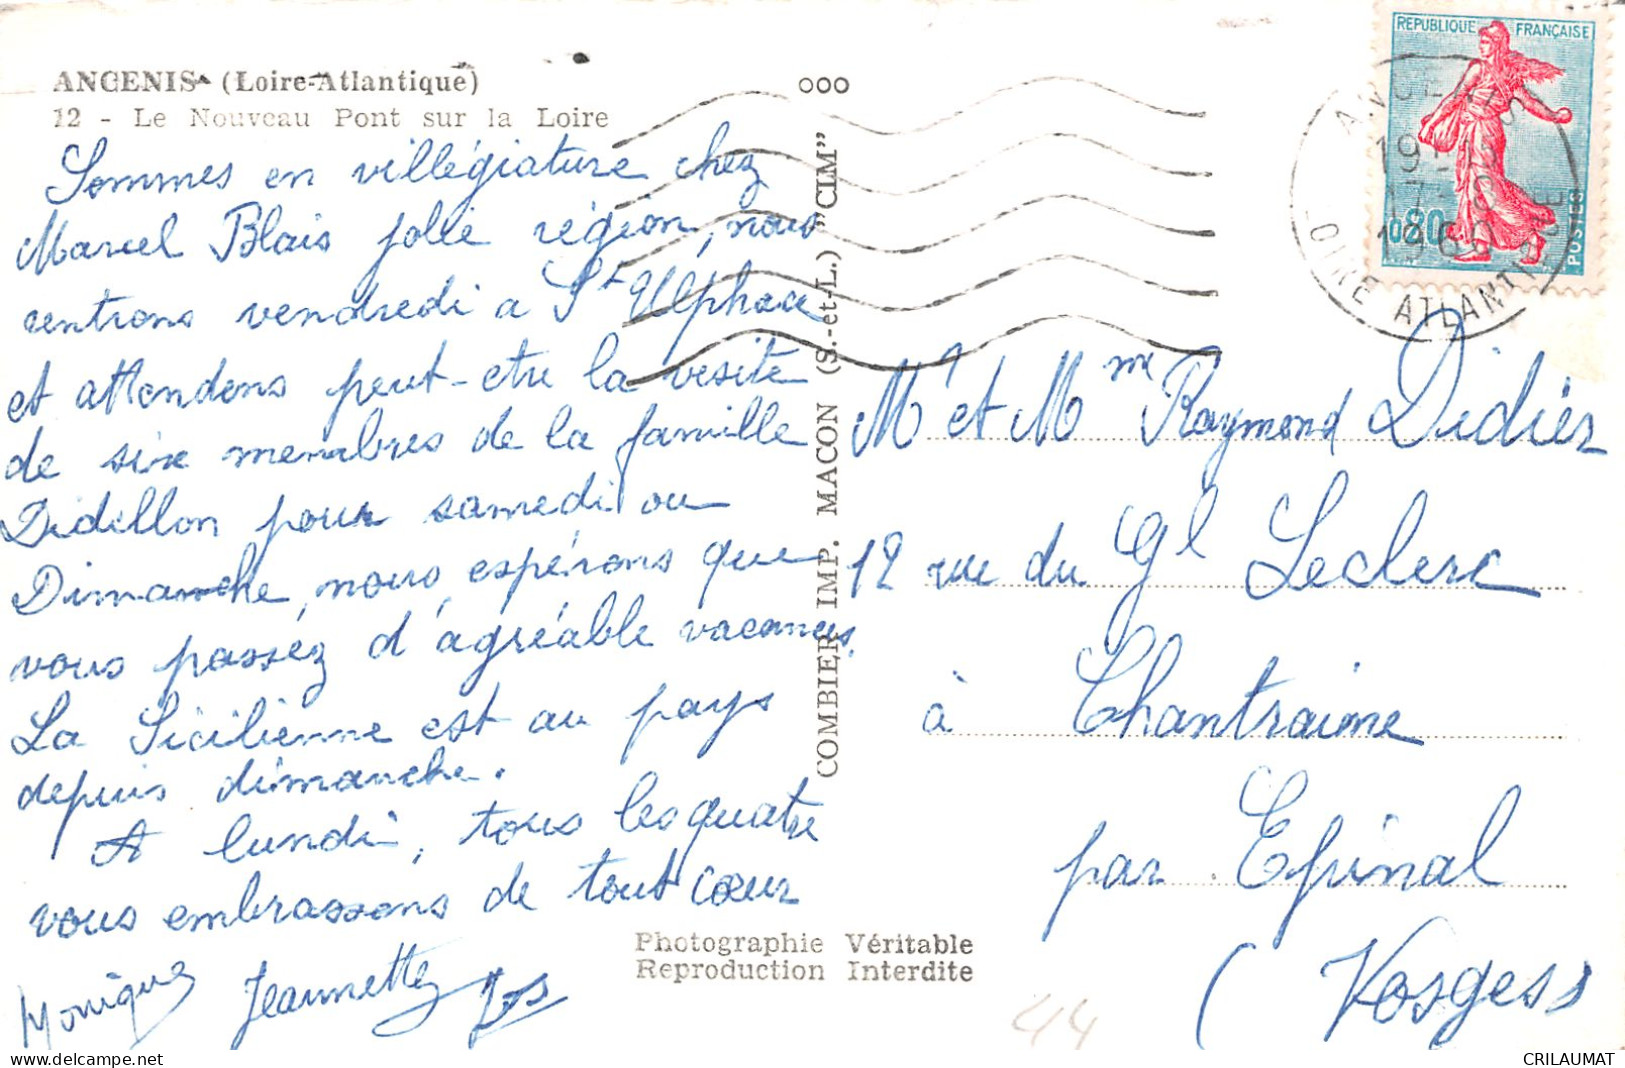 ANCENIS (Loire-Atlantique)
12 - Le Nouveau Pont sur la Loire
Sommes en villégiature chez
Marcel Blais jolie région, nous
rentrons vendredi a St Ulphace
et attendons peut-etre la visite
de six membres de la famille
Didellon pour samedi ou
Dimanche, nous espérons que
vous passéz d'agréable vacances.
La Sicilienne est au pays
depuis dimanche.
A lundi, tous les quatre
vous embrassons de tout cœur
Monique Jeannette
ooo
COMBIER IMP. MACON (S.-et-L.) "CIM"
REPUBLIQUE FRANÇAISE
0,20
POSTES
ANCENIS
19H
17
1960
LOIRE ATLANTIQUE
Mr et Mme Raymond Didier
12 rue du Gl Leclerc
à Chantraine
par Epinal
(Vosges)
Photographie Véritable
Reproduction Interdite
44
CRILAUMAT